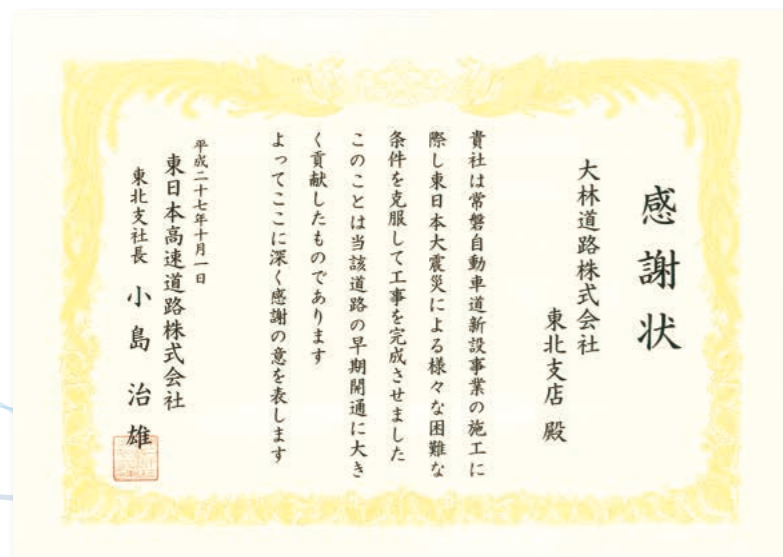 感謝状
大林道路株式会社
東北支店 殿
貴社は常磐自動車道新設事業の施工に
際し東日本大震災による様々な困難な
条件を克服して工事を完成させました
このことは当該道路の早期開通に大き
く貢献したものであります
よってここに深く感謝の意を表します
平成二十七年十月一日
東日本高速道路株式会社
東北支社長 小島 治雄